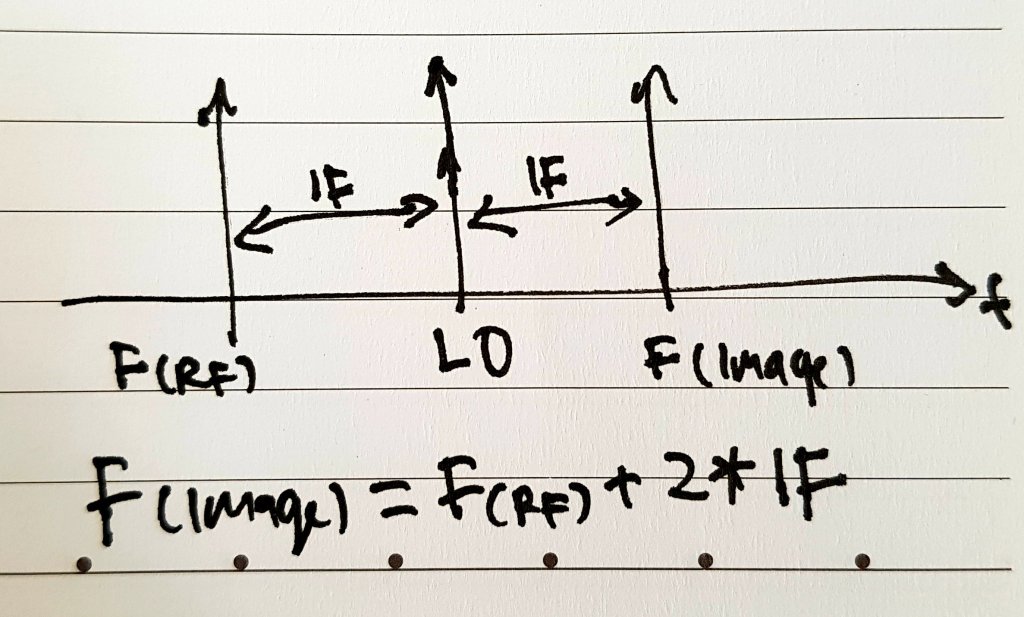 IF IF
f
F(RF) LO F(Image)
F(Image) = F(RF) + 2*IF